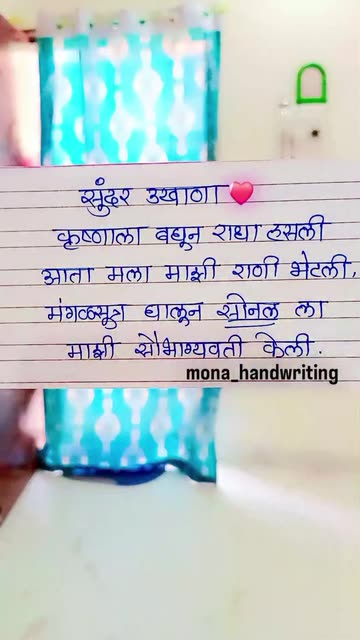 सुंदर उखाणा ❤️
कृष्णाला बघून राधा हसली
आता मला माझी राणी भेटली,
मंगळसूत्र घालून सोनल ला
माझी सौभाग्यवती केली.
mona_handwriting